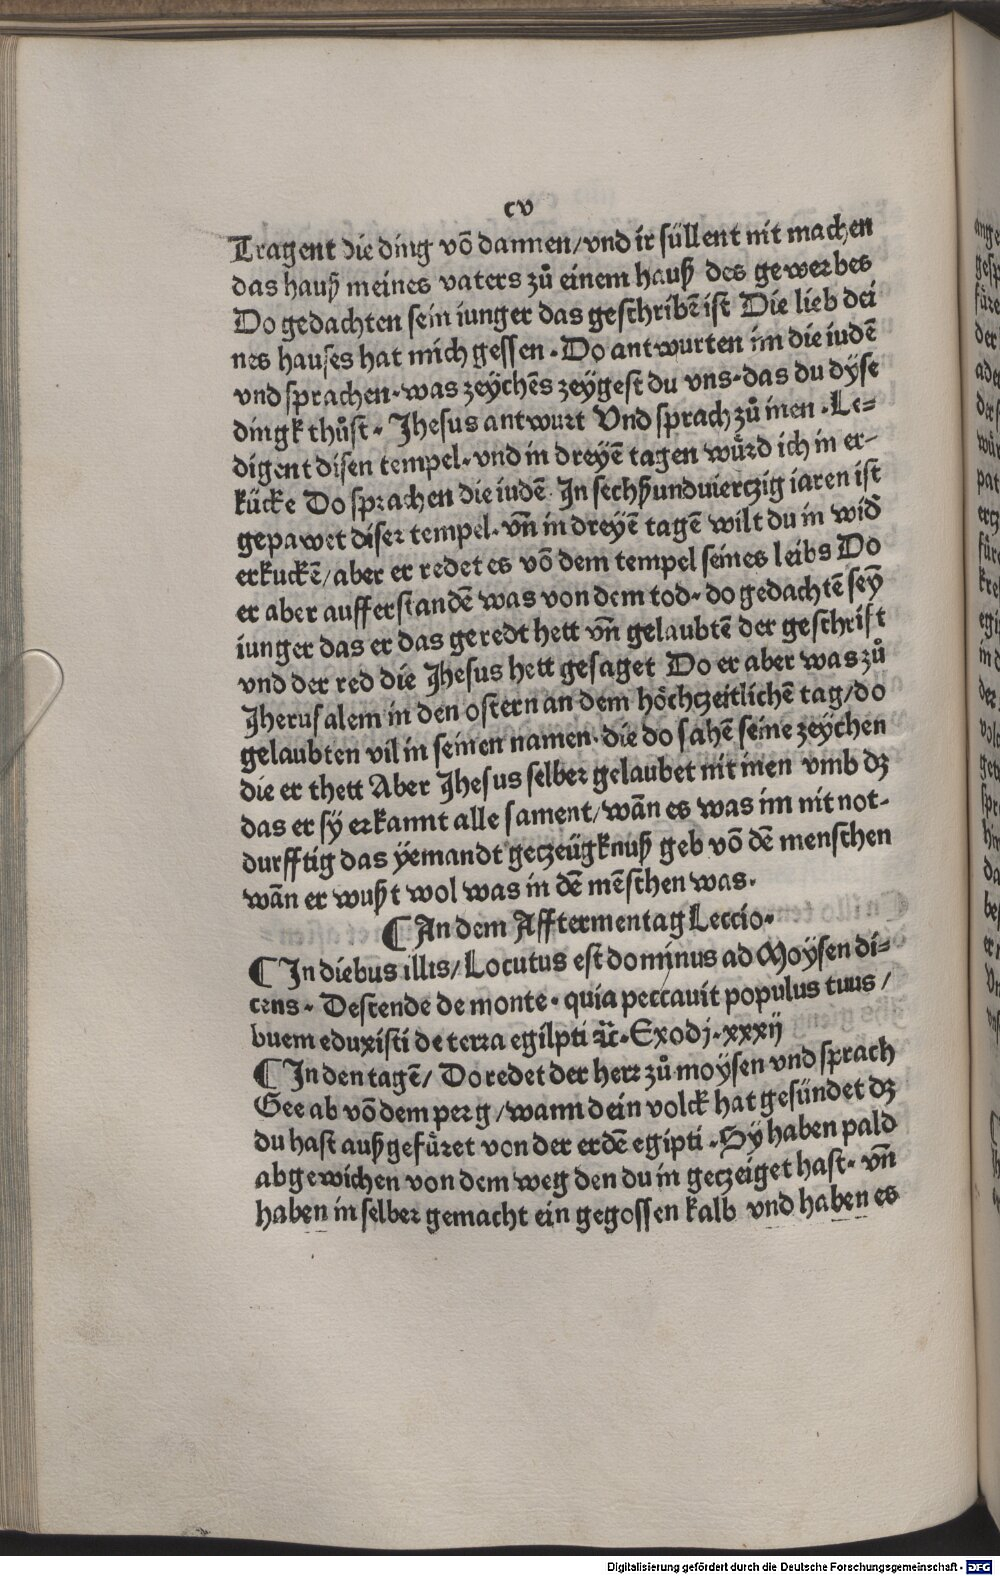 cv
Tragent die ding võ dannen/vnd ir süllent nit machen
das hauß meines vaters zů einem hauß des gewerbes
Do gedachten sein iunger das geschribẽ ist Die lieb dei
nes hauses hat mich gessen. Do antwurten im die iudẽ
vnd sprachen. was zeÿchẽs zeÿgest du vns. das du dÿse
dingk thůst. Jhesus antwurt Vnd sprach zů inen. Le⸗
digent disen tempel. vnd in dreyẽ tagen wůrd ich in er-
kücke Do sprachen die iudẽ. In sechßundvierczig iaren ist
gepawet diser tempel. vñ in dreyẽ tagẽ wilt du in wid᷑
erkuckẽ/aber er redet es võ dem tempel seines leibs Do
er aber aufferstandẽ was von dem tod. do gedachtẽ seÿ
iunger das er das geredt hett vñ gelaubtẽ der geschrift
vnd der red die Jhesus hett gesaget Do er aber was zů
Jherusalem in den ostern an dem höchczeitlichẽ tag/do
gelaubten vil in seinen namen. die do sahẽ seine zeÿchen
die er thett Aber Jhesus selber gelaubet nit inen vmb dz
das er sÿ erkannt alle sament/wãn es was im nit not-
durfftig das ÿemandt geczeügknuß geb võ dẽ menschen
wãn er wußt wol was in dẽ mẽschen was.
¶ An dem Afftermentag Leccio.
¶ In diebus illis/Locutus est dominus ad Moÿsen di⸗
cens. Descende de monte. quia peccauit populus tuus/
buem eduxisti de terra egilpti ꝛc̃. Exodj. xxxij
¶ In den tagẽ/ Do redet der herr zů moÿsen vnd sprach
Gee ab võ dem perg/wann dein volck hat gesündet dz
du hast außgefůret von der erdẽ egipti. Sÿ haben pald
abgewichen von dem weg den du in geczeiget hast. vñ
haben in selber gemacht ein gegossen kalb vnd haben es
Digitalisierung gefördert durch die Deutsche Forschungsgemeinschaft - DFG